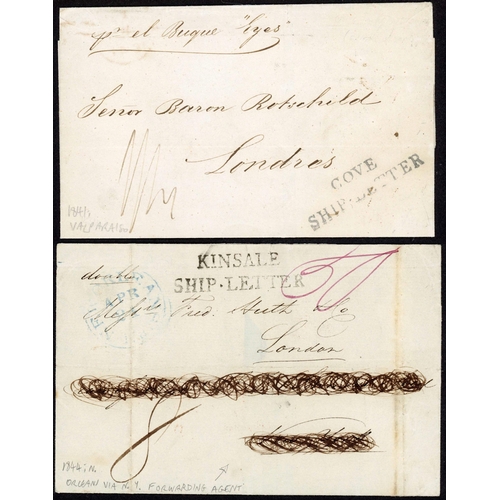 pr el Buque "Lyas"
Senor Baron Rotschild
Londres
COVE
SHIP-LETTER
1841/2
VALPARAISO
KINSALE
SHIP-LETTER
double
APR
Messrs Fred. Huth & Co
London
8
1844: N.
ORLEANS VIA N.Y. FORWARDING AGENT